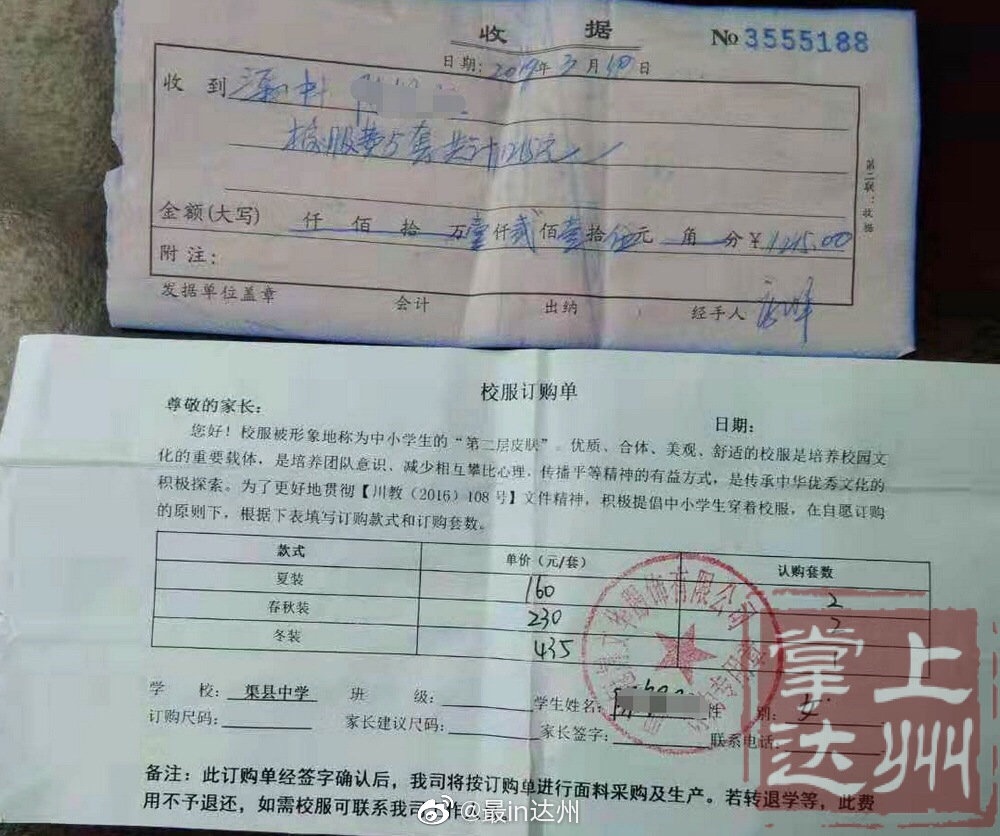 收 据
№ 3555188
日期：2019年3月10日
收 到 渠中
校服费5套共计1215元
金额(大写) 仟 佰 拾 万壹仟贰佰壹拾伍元 角 分￥1215.00
附 注：
发据单位盖章 会计 出纳 经手人
第二联：收据
校服订购单
尊敬的家长： 日期：
您好！校服被形象地称为中小学生的“第二层皮肤”。优质、合体、美观、舒适的校服是培养校园文
化的重要载体，是培养团队意识、减少相互攀比心理、传播平等精神的有益方式，是传承中华优秀文化的
积极探索。为了更好地贯彻【川教（2016）108号】文件精神，积极提倡中小学生穿着校服，在自愿订购
的原则下，根据下表填写订购款式和订购套数。
款式 单价（元/套） 认购套数
夏装 160 2
春秋装 230 2
冬装 435 1
学 校： 渠县中学 班 级： 学生姓名： 性 别：女
订购尺码： 家长建议尺码： 家长签字： 联系电话：
服饰有限公司
掌上达州
备注：此订购单经签字确认后，我司将按订购单进行面料采购及生产。若转退学等，此费
用不予退还，如需校服可联系我司
@最in达州